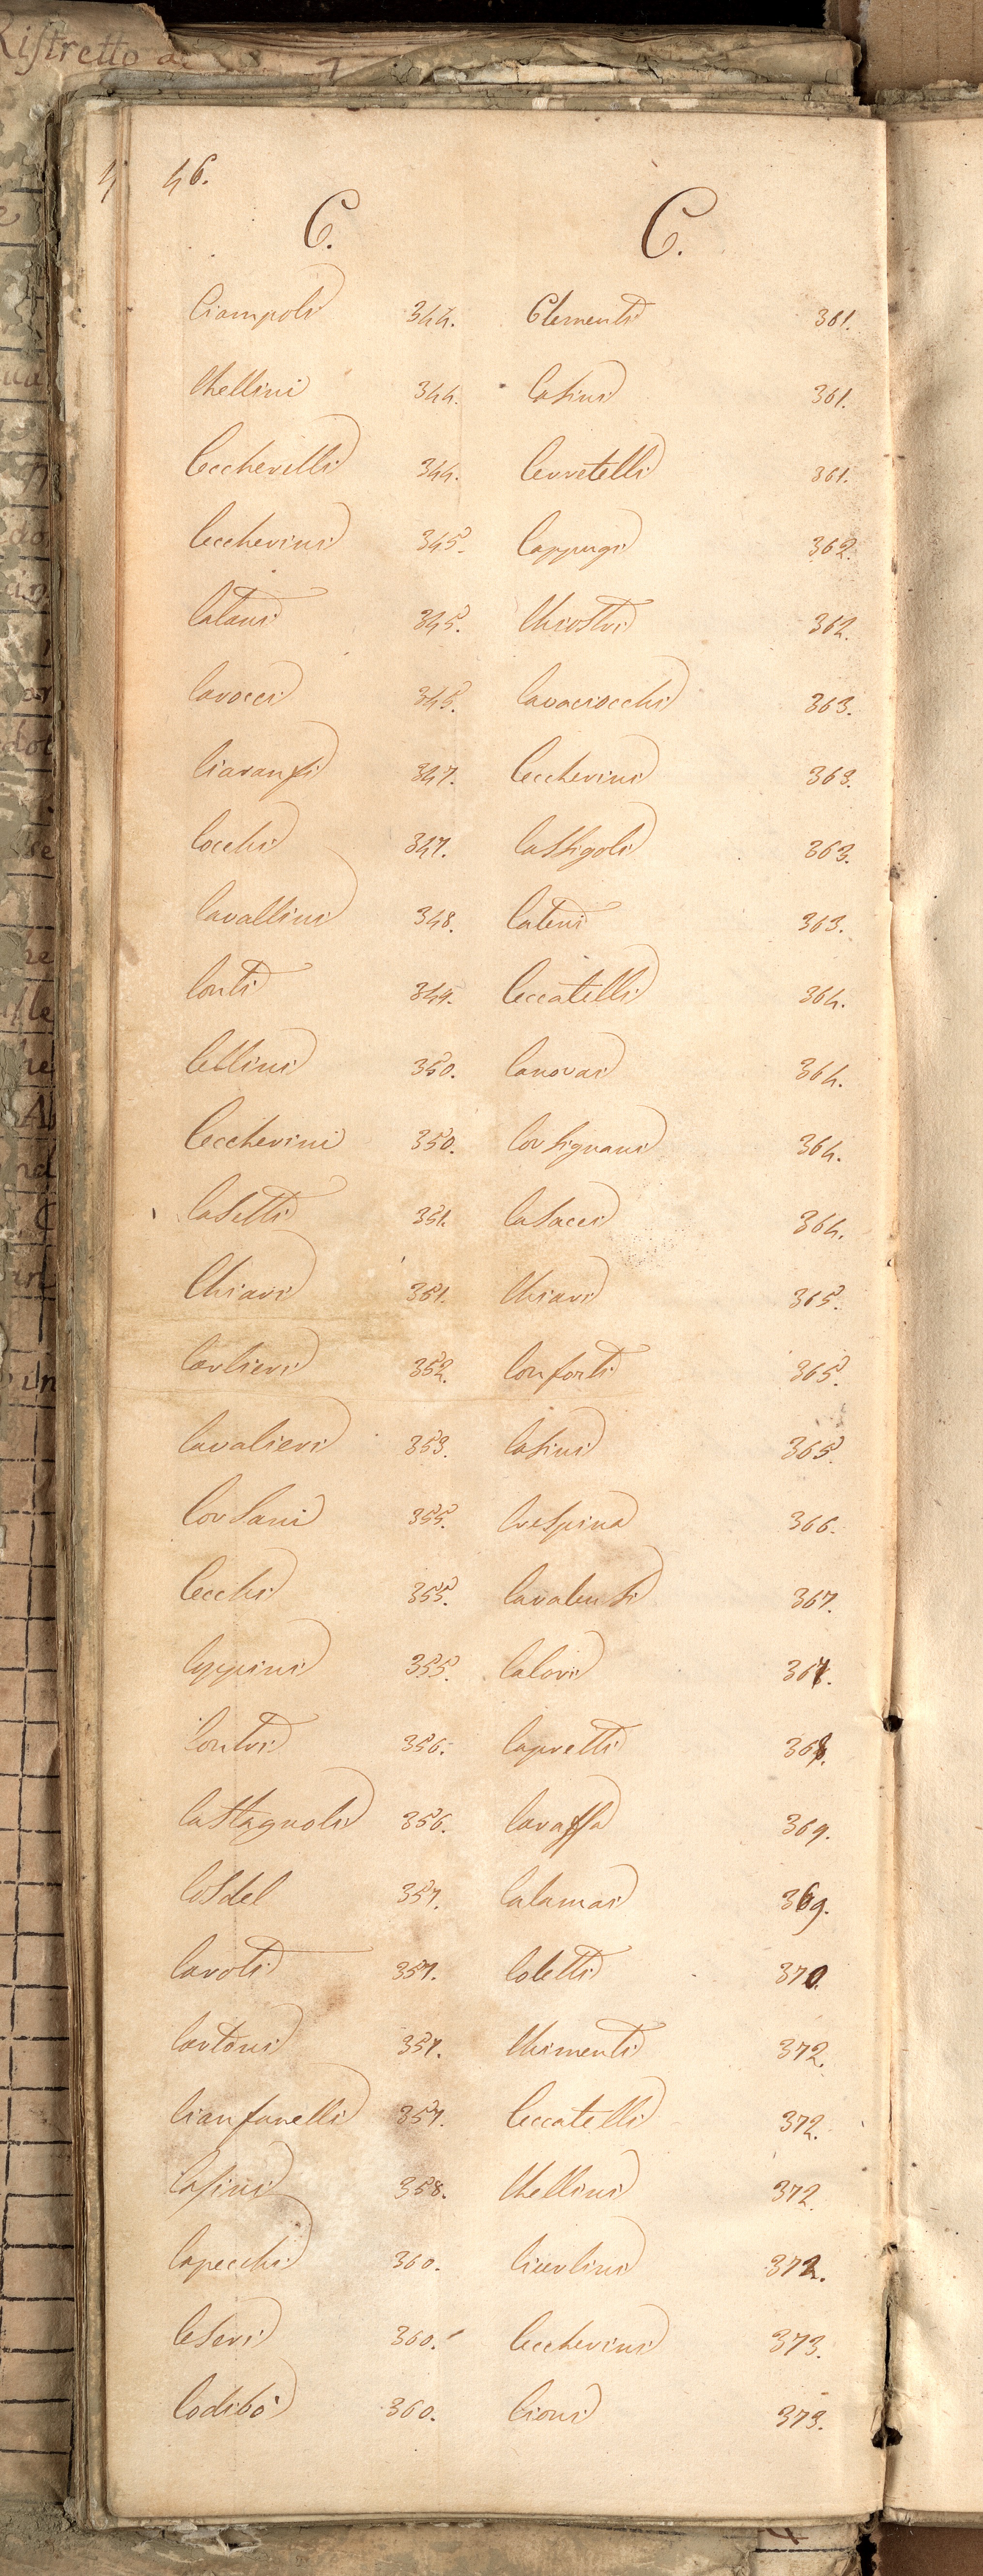 Ristretto de
46.
C. C.
Ciampoli 344. Clementi 361.
Chellini 344. Casini 361.
Ceccherelli 344. Cerretelli 361.
Ceccherini 345. Cappugi 362.
Catani 345. Chiostri 362.
Carocci 345. Cavaciocchi 363.
Ciaranfi 347. Ceccherini 363.
Cocchi 347. Castigoli 363.
Cavallini 348. Cateni 363.
Conti 349. Ceccatelli 364.
Cellini 350. Canovai 364.
Ceccherini 350. Corsignani 364.
Casetti 351. Casacci 364.
Chiari 351. Chiari 365.
Carlieri 352. Conforti 365.
Cavalieri 353. Casini 365.
Corsani 355. Crespina 366.
Cecchi 355. Cavalensi 367.
Cappini 355. Calori 367.
Contri 356. Capretti 368.
Castagnoli 356. Caraffa 369.
Cosdel 357. Calamai 369.
Caroti 357. Coletti 370.
Cartoni 357. Chimenti 372.
Cianfanelli 357. Ceccatelli 372.
Casini 358. Chellini 372.
Capecchi 360. Ciardini 372.
Ceseri 360. Ceccherini 373.
Codibò 360. Cioni 373.